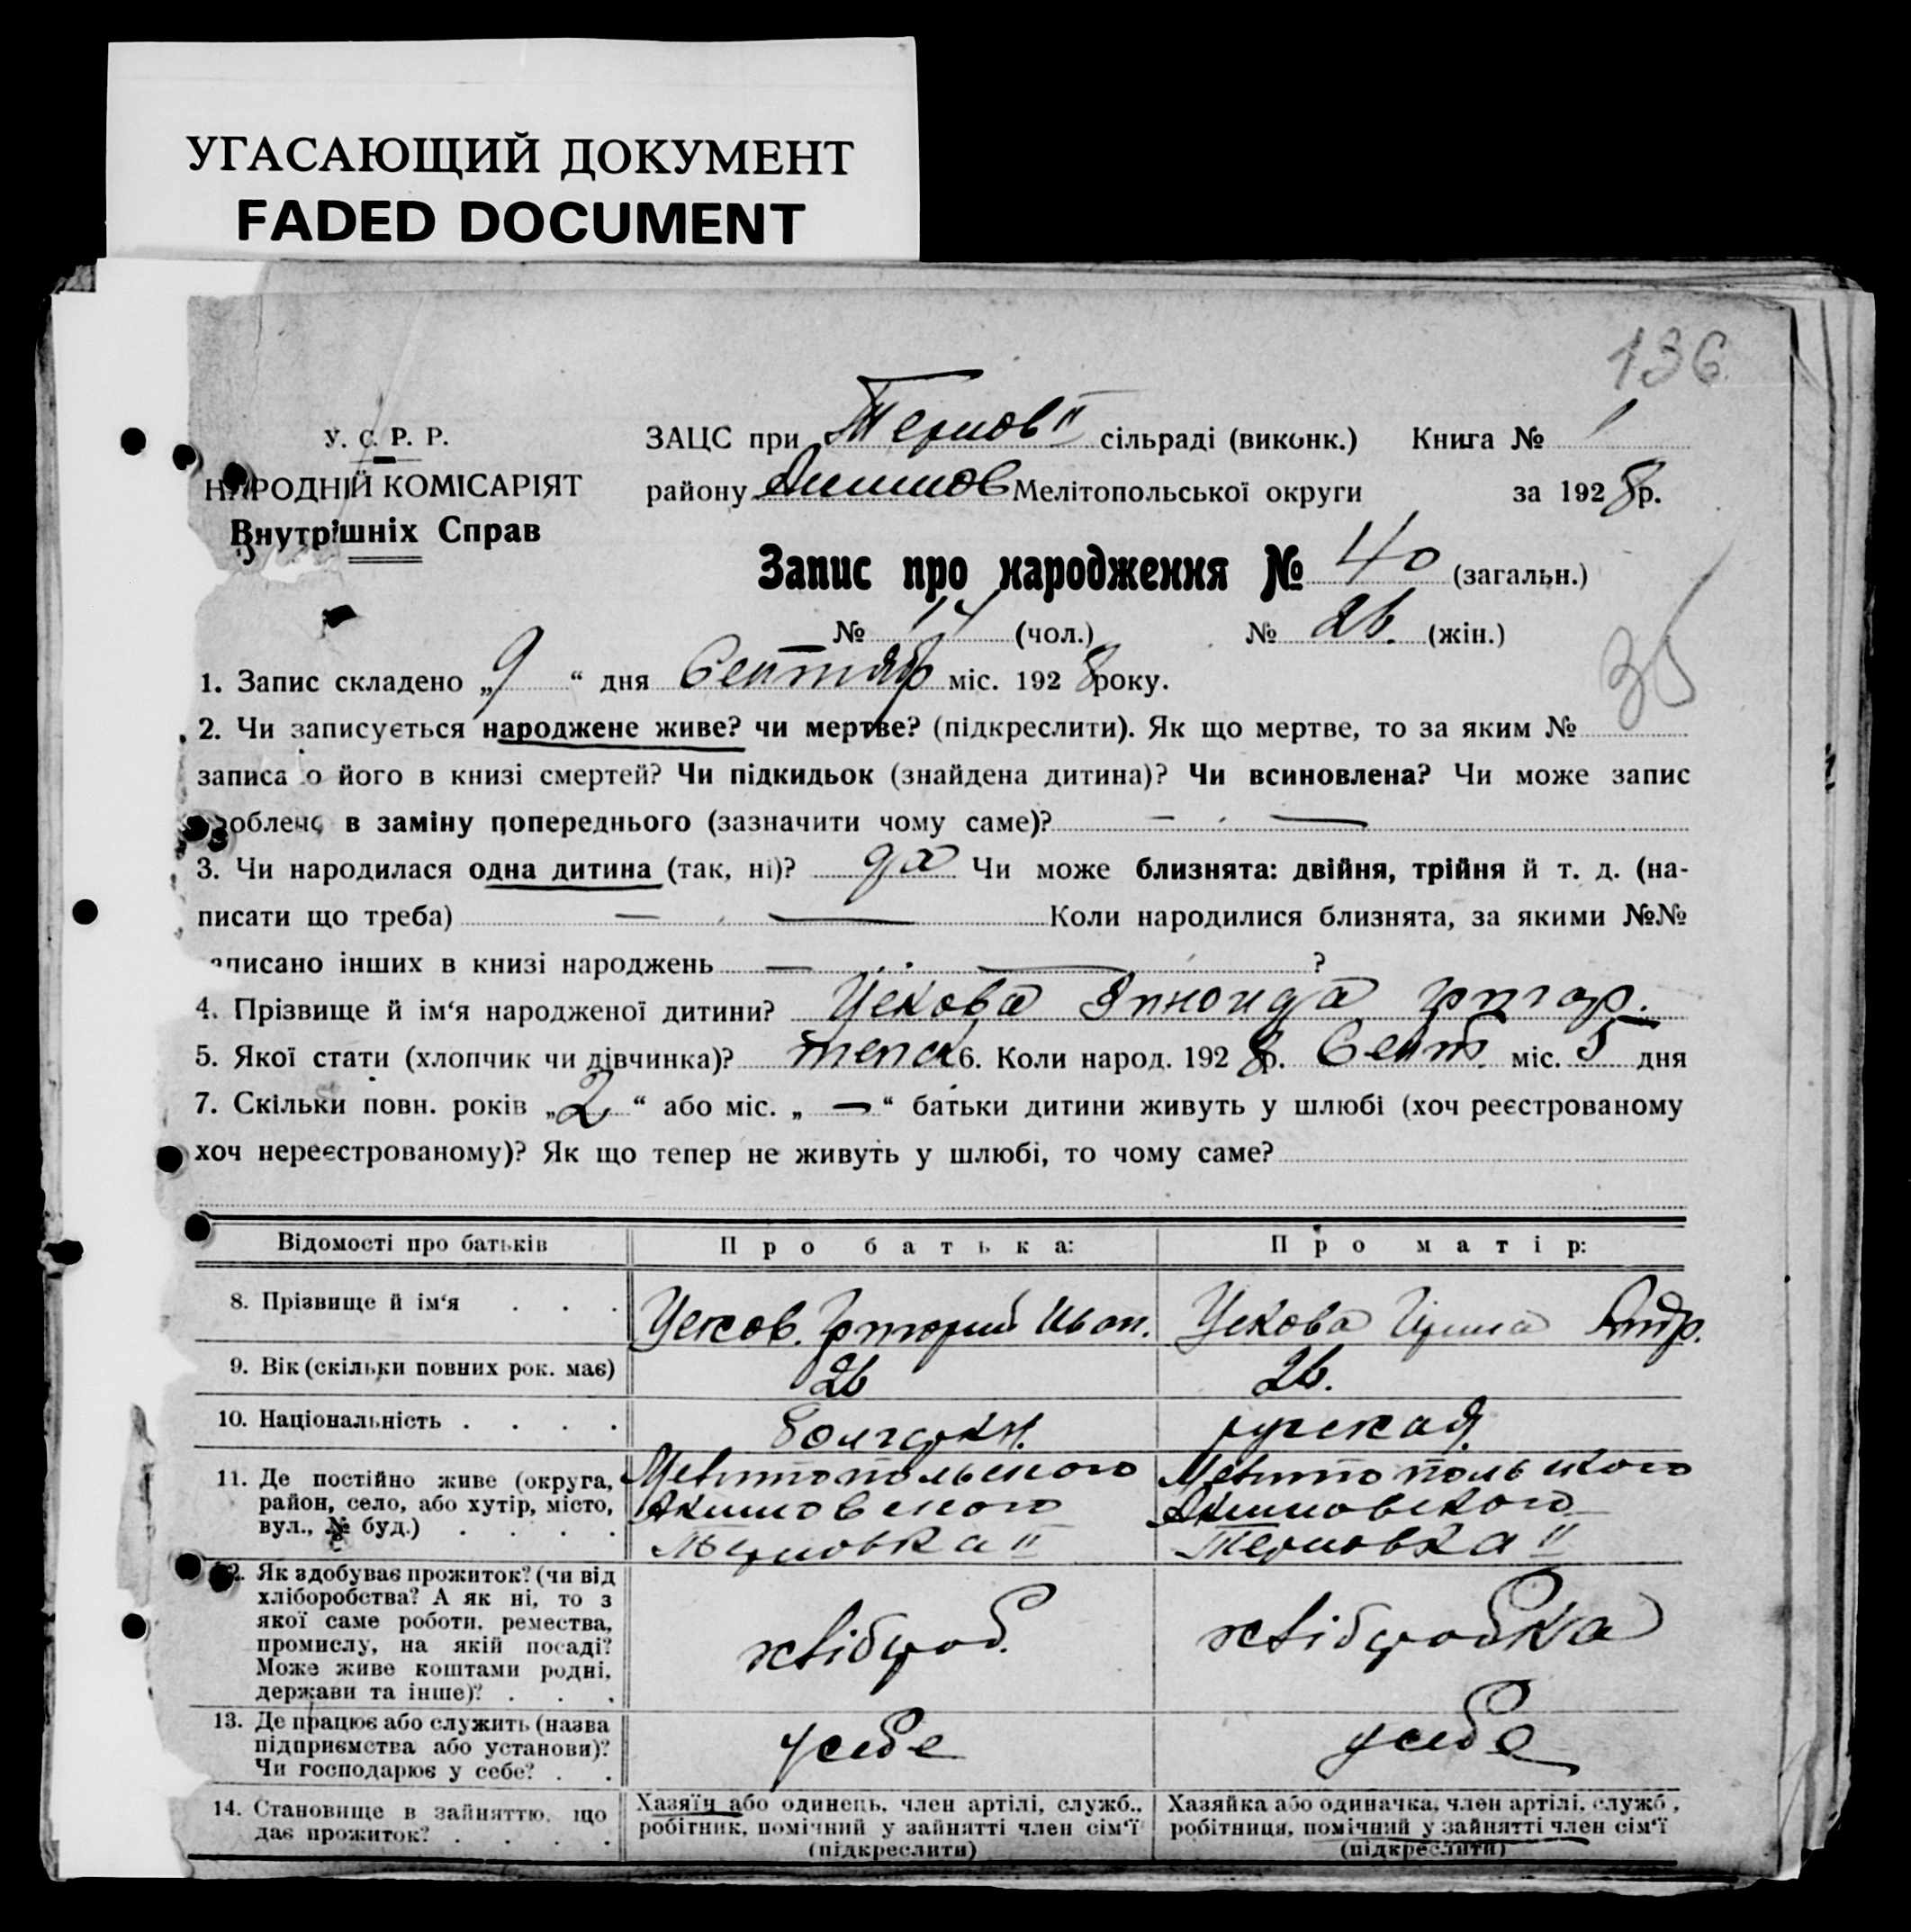 УГАСАЮЩИЙ ДОКУМЕНТ
FADED DOCUMENT
136
У. С. Р. Р.
НАРОДНІЙ КОМІСАРІЯТ
Внутрішніх Справ
ЗАЦС при Тернов II сільраді (виконк.) Книга № 1
району Акимов Мелітопольської округи за 1928 р.
Запис про народження № 40 (загальн.)
№ 14 (чол.) № 26. (жін.)
35
1. Запис складено „9“ дня Сентябр міс. 1928 року.
2. Чи записується народжене живе? чи мертве? (підкреслити). Як що мертве, то за яким №
записа о його в книзі смертей? Чи підкидьок (знайдена дитина)? Чи всиновлена? Чи може запис
зоблено в заміну попереднього (зазначити чому саме)? — —
3. Чи народилася одна дитина (так, ні)? да Чи може близнята: двійня, трійня й т. д. (на-
писати що треба) — — Коли народилися близнята, за якими №№
аписано інших в книзі народжень — — ?
4. Прізвище й ім‘я народженої дитини? Цекова Григор.
5. Якої стати (хлопчик чи дівчинка)? 6. Коли народ. 1928 р. Сент. міс. 5 дня
7. Скільки повн. років „2“ або міс. „—“ батьки дитини живуть у шлюбі (хоч реєстрованому
хоч нереєстрованому)? Як що тепер не живуть у шлюбі, то чому саме?
Відомості про батьків Про батька: Про матір:
8. Прізвище й ім‘я . . . Цеков. Григорий Иван. Цекова Ірина Андр.
9. Вік (скільки повних рок. має) 26 26.
10. Національність . . . . болгарин. руская
11. Де постійно живе (округа, район, село, або хутір, місто, вул., № буд.) . . . .
Мелитопольского Мелитопольского
Акимовского Акимовского
Терновка II Терновка II
12. Як здобуває прожиток? (чи від
хліборобства? А як ні, то з
якої саме роботи, ремества,
промислу, на якій посаді?
Може живе коштами родні,
держави та інше)? . . .
хлібороб. хліборобка
13. Де працює або служить (назва
підприємства або установи)?
Чи господарює у себе? . .
у себе у себе
14. Становище в зайняттю, що
дає прожиток? . . . .
Хазяїн або одинець, член артілі, служб.,
робітник, помічний у зайнятті член сім‘ї
(підкреслити)
Хазяйка або одиначка, член артілі, служб.,
робітниця, помічний у зайнятті член сім‘ї
(підкреслити)